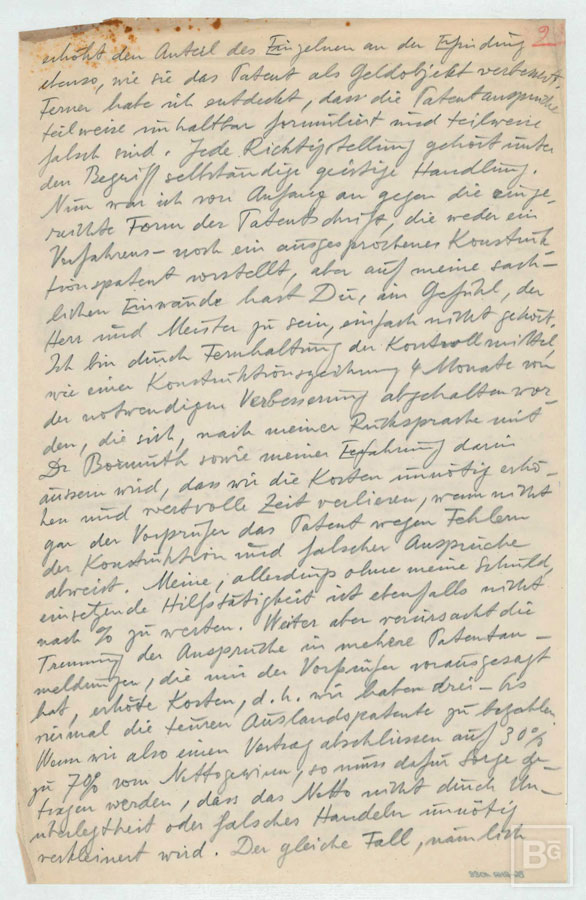 2
erhöht den Anteil des Einzelnen an der Erfindung
ebenso, wie sie das Patent als Geldobjekt verbessert.
Ferner habe ich entdeckt, dass die Patentansprüche
teilweise unhaltbar formuliert und teilweise
falsch sind. Jede Richtigstellung gehört unter
den Begriff selbständige geistige Handlung.
Nun war ich von Anfang an gegen die einge-
reichte Form der Patentschrift, die weder ein
Verfahrens- noch ein ausgesprochenes Konstruk
tionspatent vorstellt, aber auf meine sach-
lichen Einwände hast Du, im Gefühl, der
Herr und Meister zu sein, einfach nicht gehört.
Ich bin durch Fernhaltung der Kontrollmittel,
wie einer Konstruktionszeichnung 4 Monate von
der notwendigen Verbesserung abgehalten wor-
den, die sich, nach meiner Rücksprache mit
Dr Bormuth sowie meiner Erfahrung darin
äussern wird, dass wir die Kosten unnötig erhö-
hen und wertvolle Zeit verlieren, wenn nicht
gar der Vorprüfer das Patent wegen Fehlern
der Konstruktion und falscher Ansprüche
abweist. Meine, allerdings ohne meine Schuld,
einsetzende Hilfstätigkeit ist ebenfalls nicht
nach % zu werten. Weiter aber verursacht die
Trennung der Ansprüche in mehere Patentan-
meldungen, die mir der Vorprüfer vorausgesagt
hat, erhöte Kosten, d.h. wir haben drei- bis
viermal die teuren Auslandspatente zu bezahlen.
Wenn wir also einen Vertrag abschliessen auf 30%
zu 70% vom Nettogewinn, so muss dafür Sorge ge-
tragen werden, dass das Netto nicht durch Un-
überlegtheit oder falsches Handeln unnötig
verkleinert wird. Der gleiche Fall, nämlich
BG